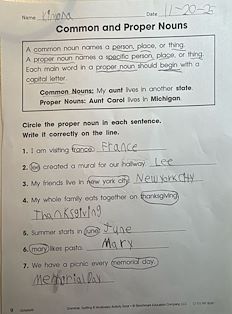 Name Kimora Date 11-20-25
Common and Proper Nouns
A common noun names a person, place, or thing.
A proper noun names a specific person, place, or thing.
Each main word in a proper noun should begin with a
capital letter.
Common Nouns: My aunt lives in another state.
Proper Nouns: Aunt Carol lives in Michigan.
Circle the proper noun in each sentence.
Write it correctly on the line.
1. I am visiting france. France
2. lee created a mural for our hallway. Lee
3. My friends live in new york city. New york city
4. My whole family eats together on thanksgiving.
Thanksgiving
5. Summer starts in june. June
6. mary likes pasta. Mary
7. We have a picnic every memorial day.
Memorial Day
Grammar, Spelling & Vocabulary Activity Book • © Benchmark Education Company, LLC